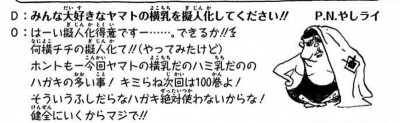 D：みんな大好きなヤマトの横乳を擬人化してください!! P.N.やしライ
O：はーい擬人化得意です……。できるか!!
何横チチの擬人化て!!（やってみたけど）
ホントもー今回ヤマトの横乳だのハミ乳だのの
ハガキの多い事! キミらね次回は100巻よ!
そういうふしだらなハガキ絶対使わないからな!
健全にいくからマジで!!